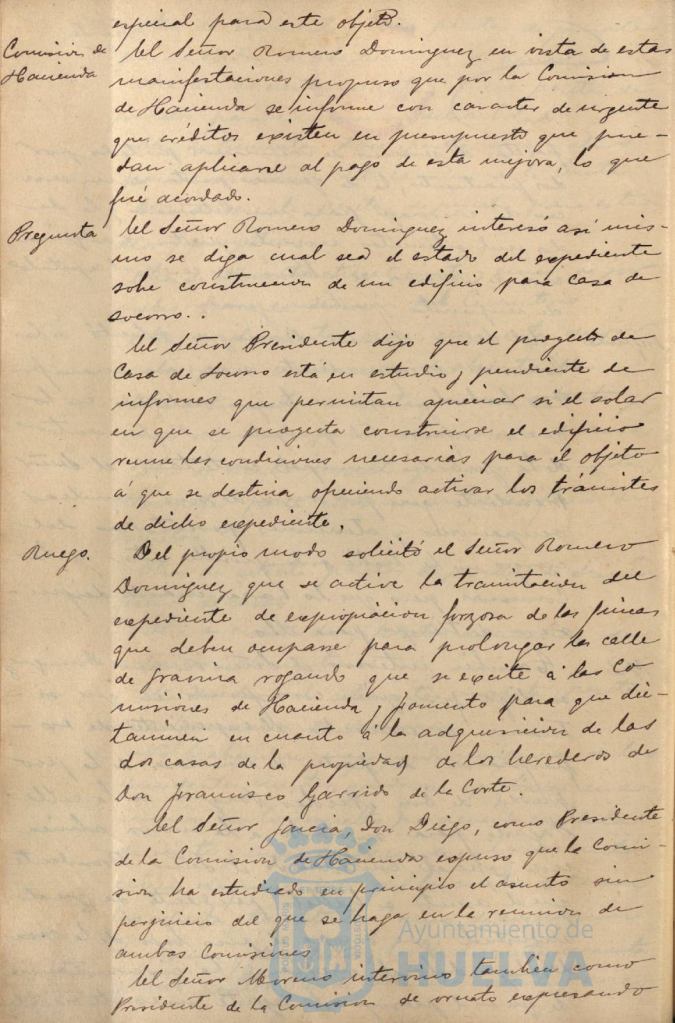 especial para este objeto.
Comision de
Hacienda
El Señor Romero Dominguez en vista de estas
manifestaciones propuso que por la Comision
de Hacienda se informe con caracter de urgente
que créditos existen en presupuesto que pue-
dan aplicarse al pago de esta mejora, lo que
fué acordado.
Pregunta
El Señor Romero Dominguez interesó asi mis-
mo se diga cual sea el estado del expediente
sobre construccion de un edificio para casa de
socorro..
El Señor Presidente dijo que el proyecto de
Casa de Socorro está en estudio y pendiente de
informes que permitan apreciar si el solar
en que se proyecta construirse el edificio
reune las condiciones necesarias para el objeto
á que se destina ofreciendo activar los trámites
de dicho expediente.
Ruego.
Del propio modo solicitó el Señor Romero
Dominguez que se active la tramitacion del
expediente de expropiacion forzosa de las fincas
que deben ocuparse para prolongar la calle
de Gravina rogando que se excite á las Co
misiones de Hacienda y Fomento para que dic-
taminen en cuanto á la adquisicion de las
dos casas de la propiedad de los herederos de
Don Francisco Garrido de la Corte.
El Señor Garcia, Don Diego, como Presidente
de la Comision de Hacienda expuso que la Comi-
sion ha estudiado en principio el asunto sin
perjuicio del que se haga en la reunion de
ambas Comisiones
El Señor Moreno intervino tambien como
Presidente de la Comision de ornato expresando
Ayuntamiento de
HUELVA